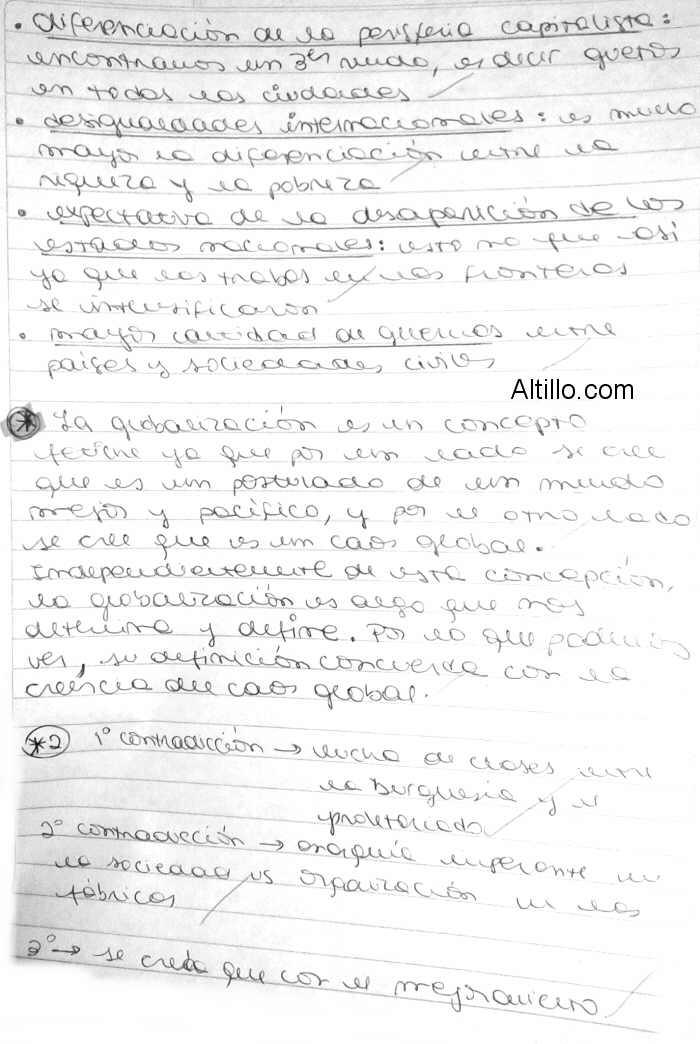 • diferenciación de la periferia capitalista:
encontramos un 3er mundo, es decir guetos
en todas las ciudades
• desigualdades internacionales: es mucho
mayor la diferenciación entre la
riqueza y la pobreza
• expectativa de la desaparición de los
estados nacionales: esto no fue así
ya que las trabas en las fronteras
se intensificaron
• mayor cantidad de guerras entre
países y sociedades civiles
Altillo.com
* La globalización es un concepto
fetiche ya que por un lado se cree
que es un postulado de un mundo
mejor y pacífico, y por el otro lado
se cree que es un caos global.
Independientemente de esta concepción,
la globalización es algo que nos
determina y define. Por lo que podemos
ver, su definición concuerda con la
creencia del caos global.
*2 1° contradicción → lucha de clases entre
la burguesía y el
proletariado
2° contradicción → anarquía imperante en
la sociedad vs organización en las
fábricas
3° → se creía que con el mejoramiento